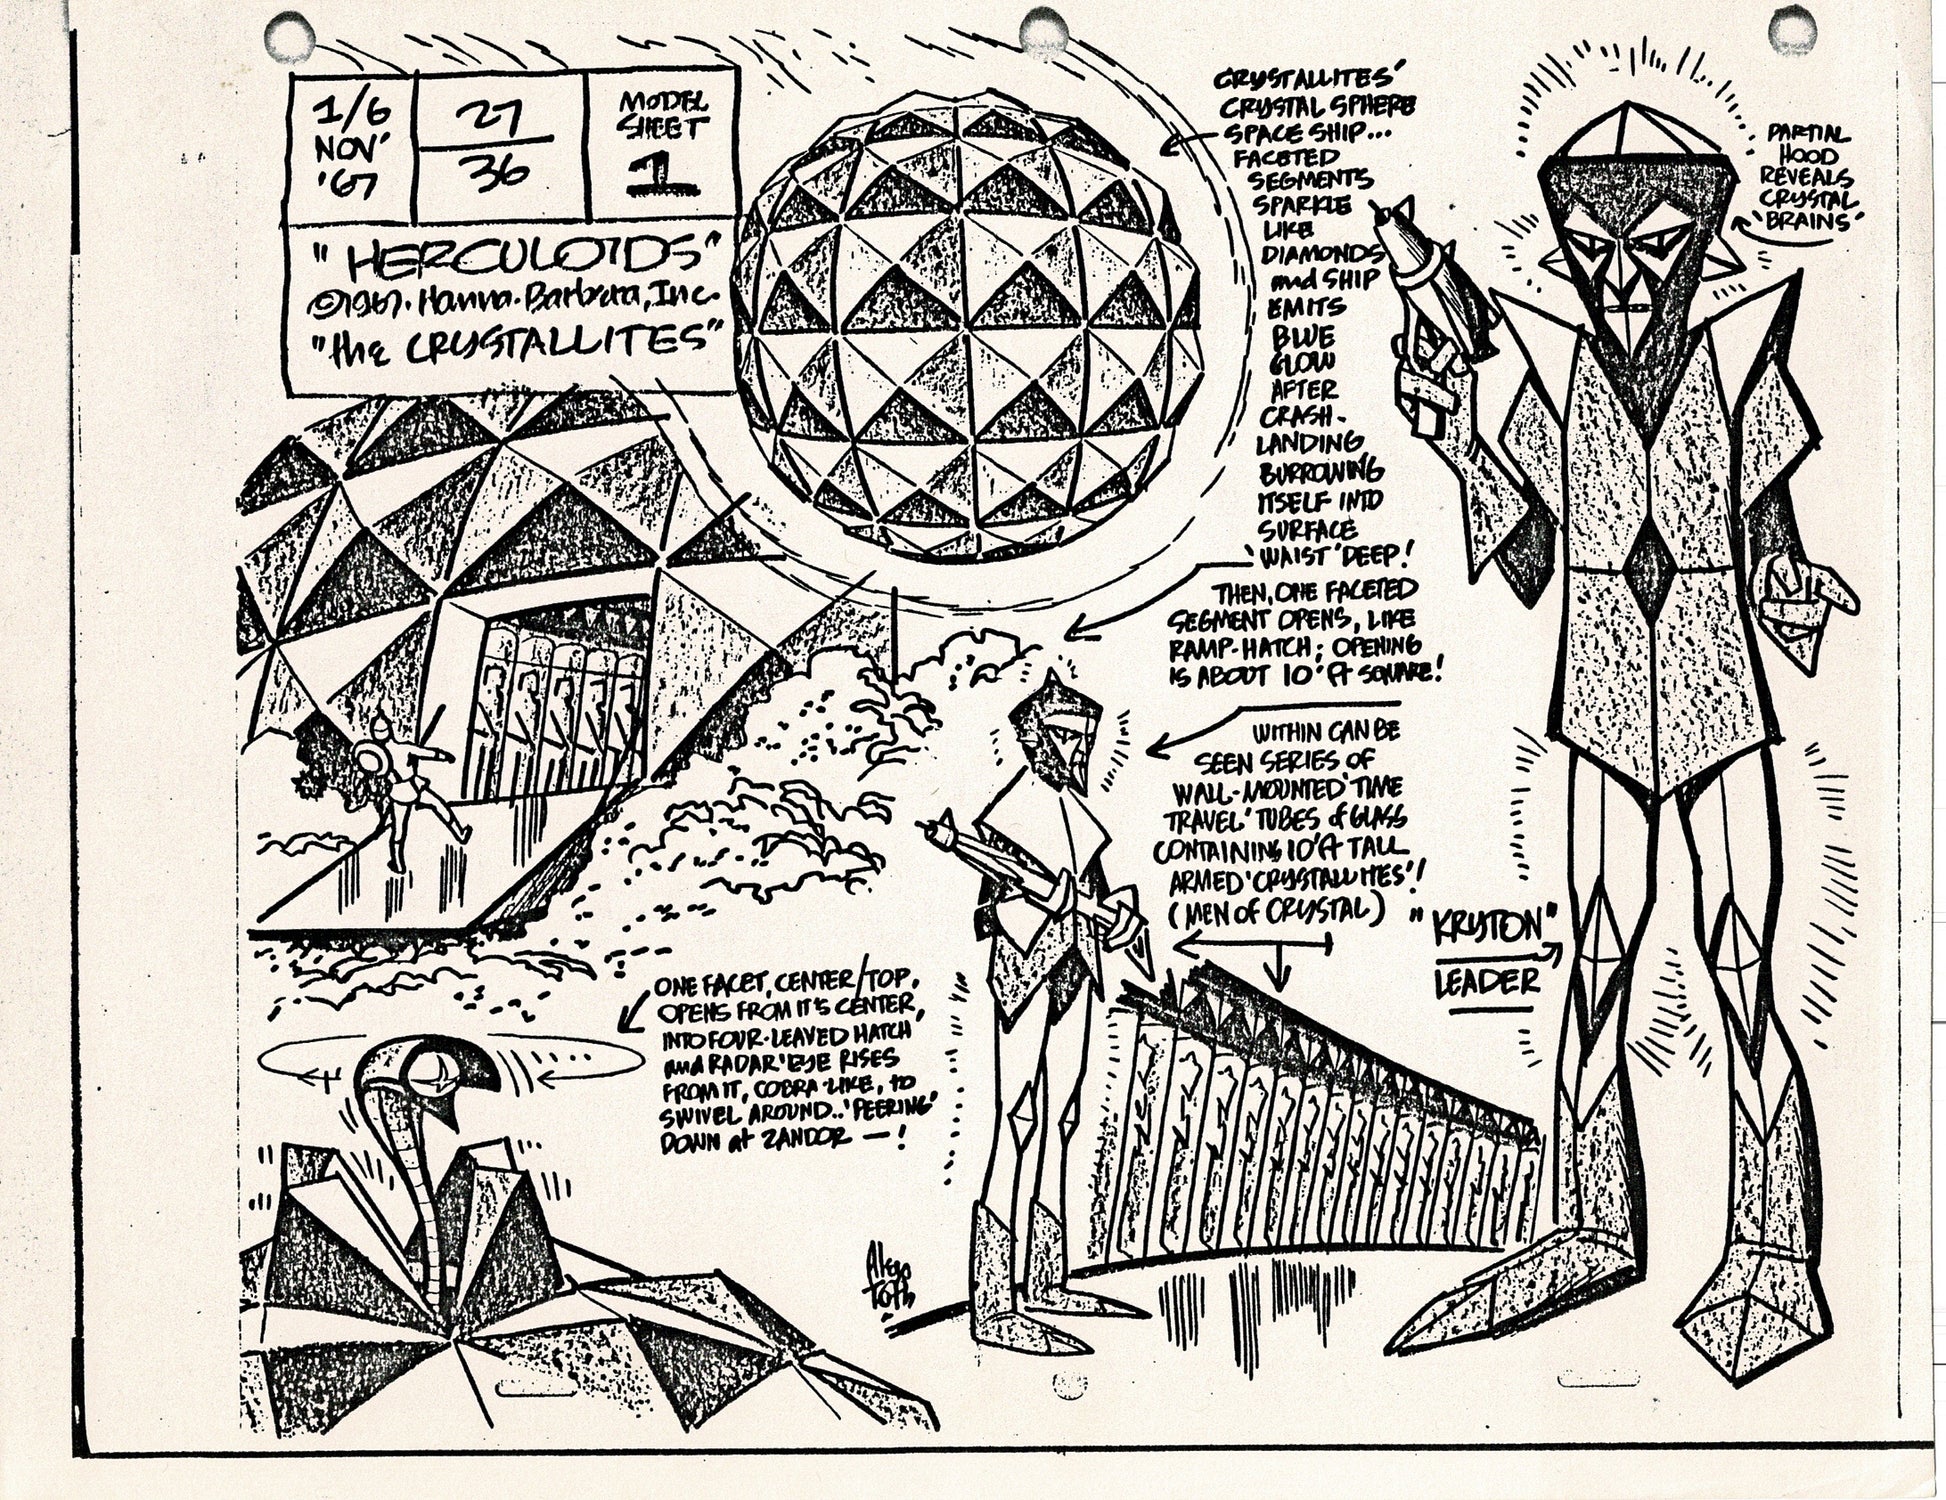 1/6
NOV'
'67
27
36
MODEL
SHEET
1
"HERCULOIDS"
©1967. Hanna-Barbera, Inc.
"the CRYSTALLITES"
CRYSTALLITES'
CRYSTAL SPHERE
SPACE SHIP...
FACETED
SEGMENTS
SPARKLE
LIKE
DIAMONDS
and SHIP
EMITS
BLUE
GLOW
AFTER
CRASH-
LANDING
BURROWING
ITSELF INTO
SURFACE
'WAIST' DEEP!
THEN, ONE FACETED
SEGMENT OPENS, LIKE
RAMP-HATCH; OPENING
IS ABOUT 10' ft SQUARE!
WITHIN CAN BE
SEEN SERIES OF
WALL-MOUNTED 'TIME
TRAVEL' TUBES of GLASS
CONTAINING 10' ft TALL
ARMED 'CRYSTALLITES'!
(MEN OF CRYSTAL)
PARTIAL
HOOD
REVEALS
CRYSTAL
'BRAINS'
"KRYTON"
LEADER
ONE FACET, CENTER/TOP,
OPENS FROM IT'S CENTER,
INTO FOUR-LEAVED HATCH
and RADAR 'EYE RISES
FROM IT, COBRA-LIKE, to
SWIVEL AROUND..'PEERING'
DOWN at ZANDOR —!
Alex
Toth